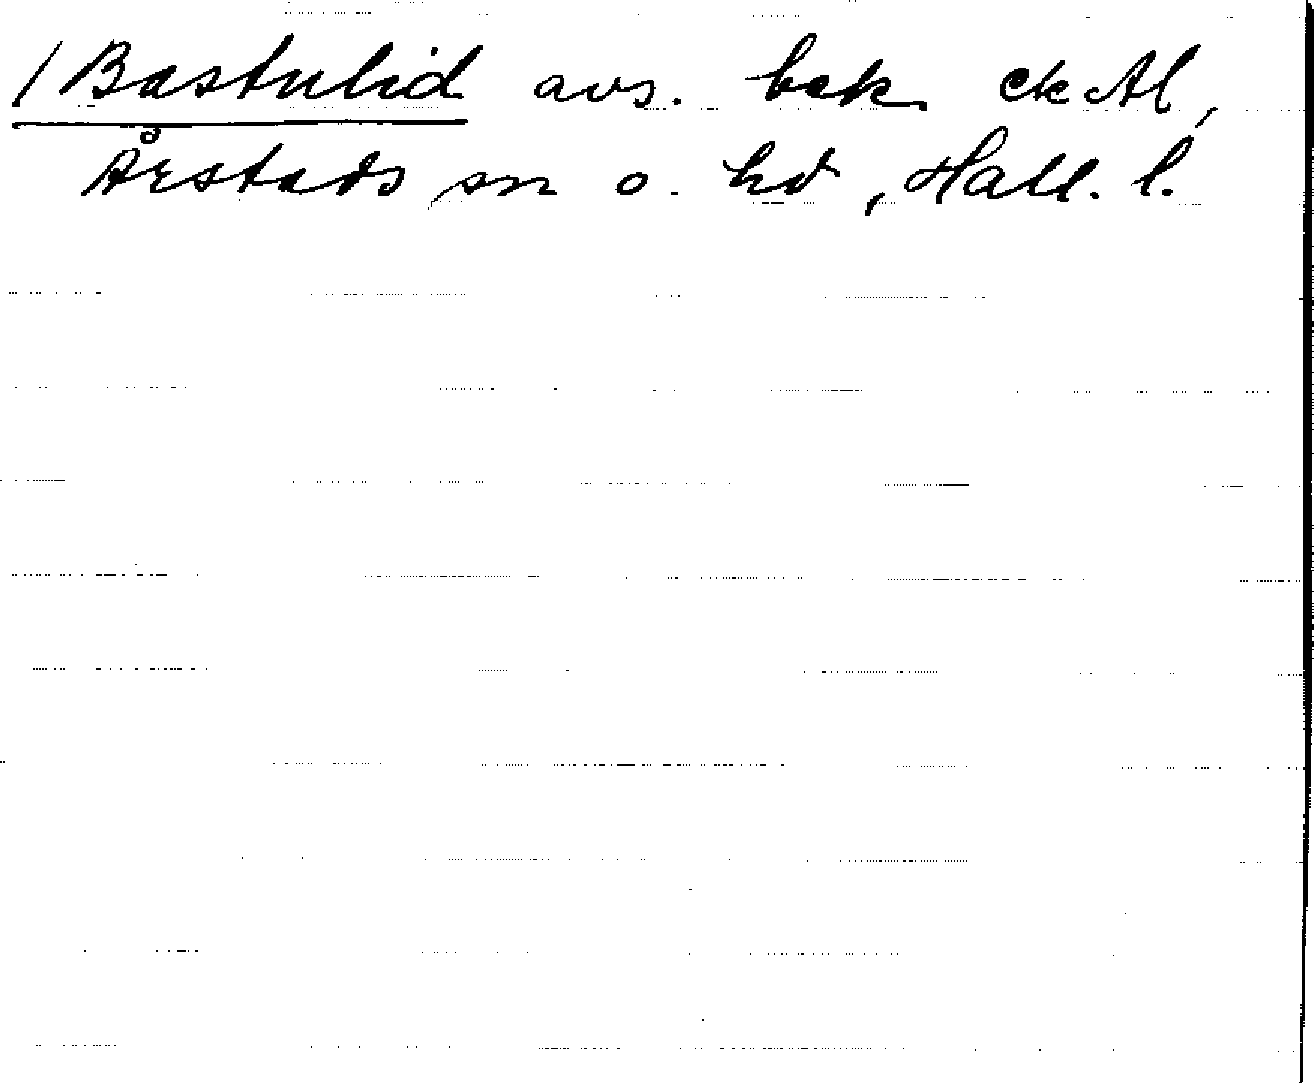 /Bastulid avs. bek ek Al,
Årstads sn o. hd, Hall. l.